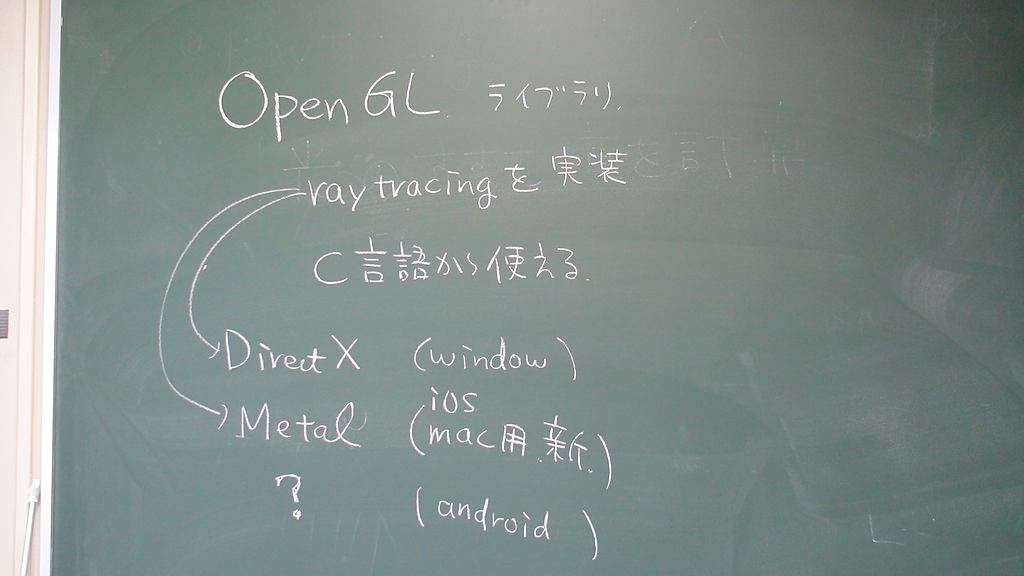 OpenGL ライブラリ.
ray tracingを実装
C言語から使える.
DirectX (window)
ios
Metal (mac用.新.)
? (android)